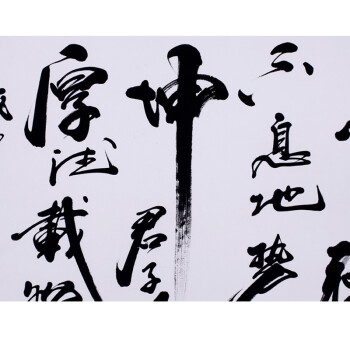 不息地勢
坤君子
厚德載物